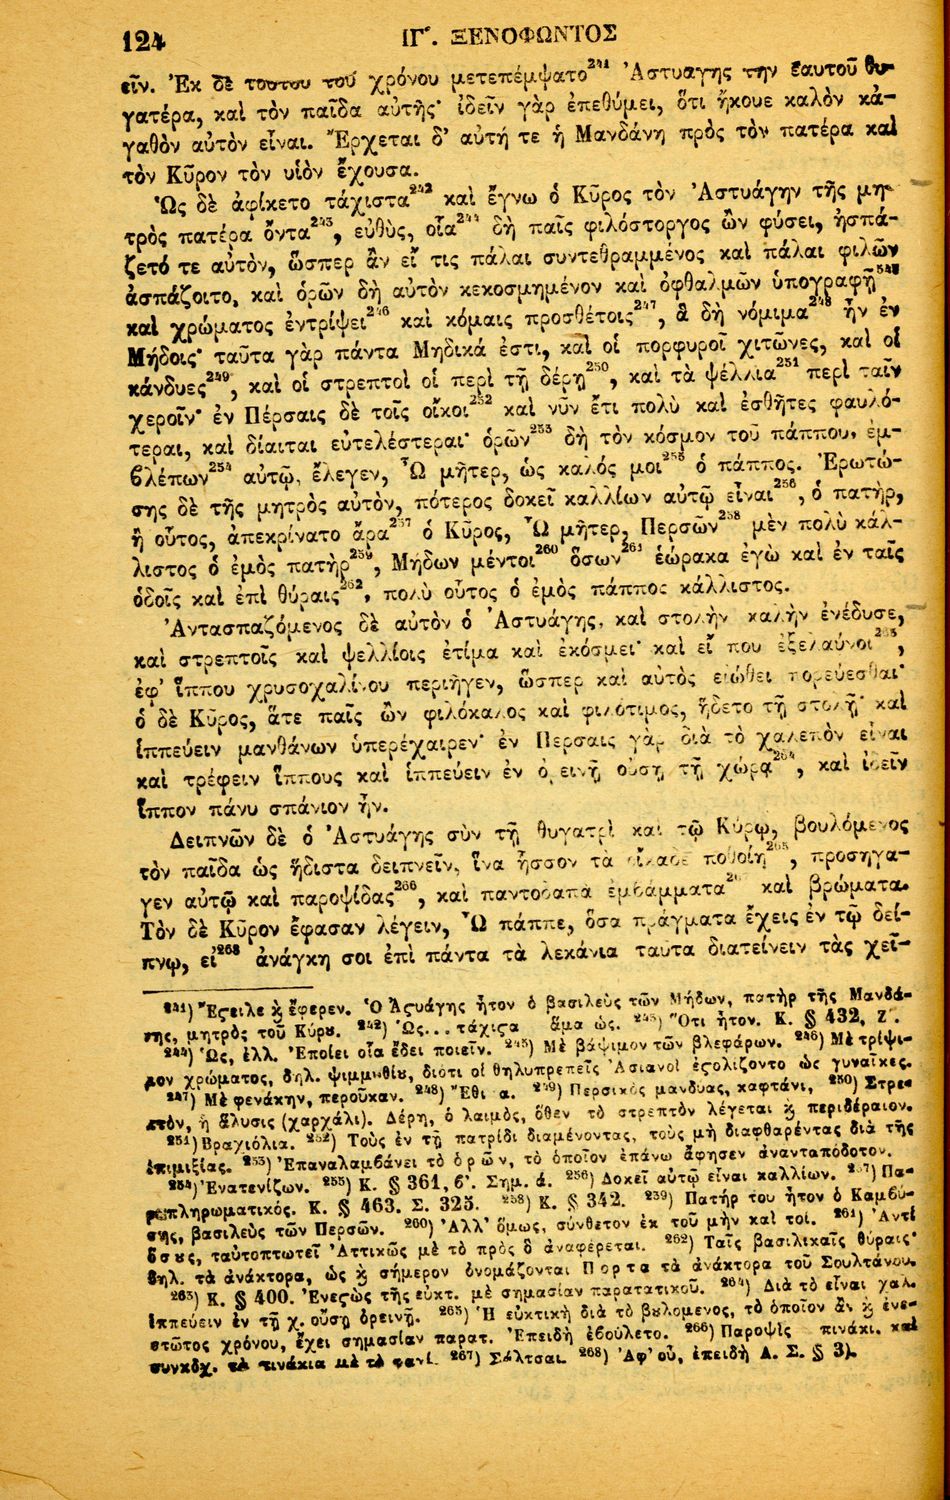 124
ΙΓʹ. ΞΕΝΟΦΩΝΤΟΣ
εῖν. Ἐκ δὲ τούτου τοῦ χρόνου μετεπέμψατο²⁴¹ Ἀστυάγης τὴν ἑαυτοῦ θυ-
γατέρα, καὶ τὸν παῖδα αὐτῆς· ἰδεῖν γὰρ ἐπεθύμει, ὅτι ἤκουε καλὸν κἀ-
γαθὸν αὐτὸν εἶναι. Ἔρχεται δ' αὐτή τε ἡ Μανδάνη πρὸς τὸν πατέρα καὶ
τὸν Κῦρον τὸν υἱὸν ἔχουσα.
Ὡς δὲ ἀφίκετο τάχιστα²⁴² καὶ ἔγνω ὁ Κῦρος τὸν Ἀστυάγην τῆς μη-
τρὸς πατέρα ὄντα²⁴³, εὐθὺς, οἷα²⁴⁴ δὴ παῖς φιλόστοργος ὢν φύσει, ἠσπά-
ζετό τε αὐτὸν, ὥσπερ ἂν εἴ τις πάλαι συντεθραμμένος καὶ πάλαι φιλῶν
ἀσπάζοιτο, καὶ ὁρῶν δὴ αὐτὸν κεκοσμημένον καὶ ὀφθαλμῶν ὑπογραφῇ²⁴⁵
καὶ χρώματος ἐντρίψει²⁴⁶ καὶ κόμαις προσθέτοις²⁴⁷, ἃ δὴ νόμιμα²⁴⁸ ἦν ἐν
Μήδοις· ταῦτα γὰρ πάντα Μηδικά ἐστι, καὶ οἱ πορφυροῖ χιτῶνες, καὶ οἱ
κάνδυες²⁴⁹, καὶ οἱ στρεπτοὶ οἱ περὶ τῇ δέρῃ²⁵⁰, καὶ τὰ ψέλλια²⁵¹ περὶ ταῖν
χεροῖν· ἐν Πέρσαις δὲ τοῖς οἴκοι²⁵² καὶ νῦν ἔτι πολὺ καὶ ἐσθῆτες φαυλό-
τεραι, καὶ δίαιται εὐτελέστεραι· ὁρῶν²⁵³ δὴ τὸν κόσμον τοῦ πάππου, ἐμ-
βλέπων²⁵⁴ αὐτῷ, ἔλεγεν, Ὦ μῆτερ, ὡς καλός μοι²⁵⁵ ὁ πάππος. Ἐρωτώ-
σης δὲ τῆς μητρὸς αὐτὸν, πότερος δοκεῖ καλλίων αὐτῷ εἶναι²⁵⁶, ὁ πατὴρ,
ἢ οὗτος, ἀπεκρίνατο ἄρα²⁵⁷ ὁ Κῦρος, Ὦ μῆτερ, Περσῶν²⁵⁸ μὲν πολὺ κάλ-
λιστος ὁ ἐμὸς πατὴρ²⁵⁹, Μήδων μέντοι²⁶⁰ ὅσων²⁶¹ ἑώρακα ἐγὼ καὶ ἐν ταῖς
ὁδοῖς καὶ ἐπὶ θύραις²⁶², πολὺ οὗτος ὁ ἐμὸς πάππος κάλλιστος.
Ἀντασπαζόμενος δὲ αὐτὸν ὁ Ἀστυάγης, καὶ στολὴν καλὴν ἐνέδυσε,
καὶ στρεπτοῖς καὶ ψελλίοις ἐτίμα καὶ ἐκόσμει· καὶ εἴ που ἐξελαύνοι²⁶³,
ἐφ' ἵππου χρυσοχαλίνου περιῆγεν, ὥσπερ καὶ αὐτὸς εἰώθει πορεύεσθαι·
ὁ δὲ Κῦρος, ἅτε παῖς ὢν φιλόκαλος καὶ φιλότιμος, ἥδετο τῇ στολῇ· καὶ
ἱππεύειν μανθάνων ὑπερέχαιρεν· ἐν Πέρσαις γὰρ διὰ τὸ χαλεπὸν εἶναι
καὶ τρέφειν ἵππους καὶ ἱππεύειν ἐν ὀρεινῇ οὔσῃ τῇ χώρᾳ²⁶⁴, καὶ ἰδεῖν
ἵππον πάνυ σπάνιον ἦν.
Δειπνῶν δὲ ὁ Ἀστυάγης σὺν τῇ θυγατρὶ καὶ τῷ Κύρῳ, βουλόμενος
τὸν παῖδα ὡς ἥδιστα δειπνεῖν, ἵνα ἧσσον τὰ οἴκαδε ποθοίη²⁶⁵, προσηγα-
γεν αὐτῷ καὶ παροψίδας²⁶⁶, καὶ παντοδαπὰ ἐμβάμματα²⁶⁷ καὶ βρώματα.
Τὸν δὲ Κῦρον ἔφασαν λέγειν, Ὦ πάππε, ὅσα πράγματα ἔχεις ἐν τῷ δεί-
πνῳ, εἰ²⁶⁸ ἀνάγκη σοι ἐπὶ πάντα τὰ λεκάνια ταῦτα διατείνειν τὰς χεῖ-
²⁴¹) Ἔϛειλε ϗ ἔφερεν. Ὁ Ἀϛυάγης ἦτον ὁ βασιλεὺς τῶν Μήδων, πατὴρ τῆς Μανδά-
νης, μητρὸς τοῦ Κύρȣ. ²⁴²) Ὡς... τάχιϛα ἅμα ὡς. ²⁴³) Ὅτι ἦτον. Κ. § 432, Ζʹ.
²⁴⁴) Ὡς, ἑλλ. Ἐποίει οἷα ἔδει ποιεῖν. ²⁴⁵) Μὲ βάψιμον τῶν βλεφάρων. ²⁴⁶) Μὲ τρίψι-
μον χρώματος, δηλ. ψιμμυθίȣ, διότι οἱ θηλυπρεπεῖς Ἀσιανοὶ ἐϛολίζοντο ὡς γυναῖκες.
²⁴⁷) Μὲ φενάκην, περοῦκαν. ²⁴⁸) Ἔθιμα. ²⁴⁹) Περσικὸς μανδύας, καφτάνι, ²⁵⁰) Στρε-
πτὸν, ἡ ἅλυσις (χαρχάλι). Δέρη, ὁ λαιμὸς, ὅθεν τὸ στρεπτὸν λέγεται ϗ περιδέραιον.
²⁵¹) Βραχιόλια. ²⁵²) Τοὺς ἐν τῇ πατρίδι διαμένοντας, τοὺς μὴ διαφθαρέντας διὰ τῆς
ἐπιμιξίας. ²⁵³) Ἐπαναλαμβάνει τὸ ὁρῶν, τὸ ὁποῖον ἐπάνω ἄφησεν ἀνανταπόδοτον.
²⁵⁴) Ἐνατενίζων. ²⁵⁵) Κ. § 361, 6ʹ. Σημ. ά. ²⁵⁶) Δοκεῖ αὐτῷ εἶναι καλλίων. ²⁵⁷) Πα-
ραπληρωματικός. Κ. § 463. Σ. 325. ²⁵⁸) Κ. § 342. ²⁵⁹) Πατήρ του ἦτον ὁ Καμβύ-
σης, βασιλεὺς τῶν Περσῶν. ²⁶⁰) Ἀλλ' ὅμως, σύνθετον ἐκ τοῦ μὴν καὶ τοί. ²⁶¹) Ἀντὶ
ὅσȣς, ταὐτοπτωτεῖ Ἀττικῶς μὲ τὸ πρὸς ὃ ἀναφέρεται. ²⁶²) Ταῖς βασιλικαῖς θύραις·
δηλ. τὰ ἀνάκτορα, ὡς ϗ σήμερον ὀνομάζονται Πορτα τὰ ἀνάκτορα τοῦ Σουλτάνου.
²⁶³) Κ. § 400. Ἐνεϛὼς τῆς εὐκτ. μὲ σημασίαν παρατατικοῦ. ²⁶⁴) Διὰ τὸ εἶναι χαλ.
ἱππεύειν ἐν τῇ χ. οὔσῃ ὀρεινῇ. ²⁶⁵) Ἡ εὐκτικὴ διὰ τὸ βȣλομενος, τὸ ὁποῖον ἂν ϗ ἐνε-
στῶτος χρόνου, ἔχει σημασίαν παρατ. Ἐπειδὴ ἐβούλετο. ²⁶⁶) Παροψὶς πινάκι. καὶ
συνκδχ. τὰ πινάκια μὲ τὸ φαγί. ²⁶⁷) Σάλτσαι. ²⁶⁸) Ἀφ' οὗ, ἐπειδὴ Α. Σ. § 3).